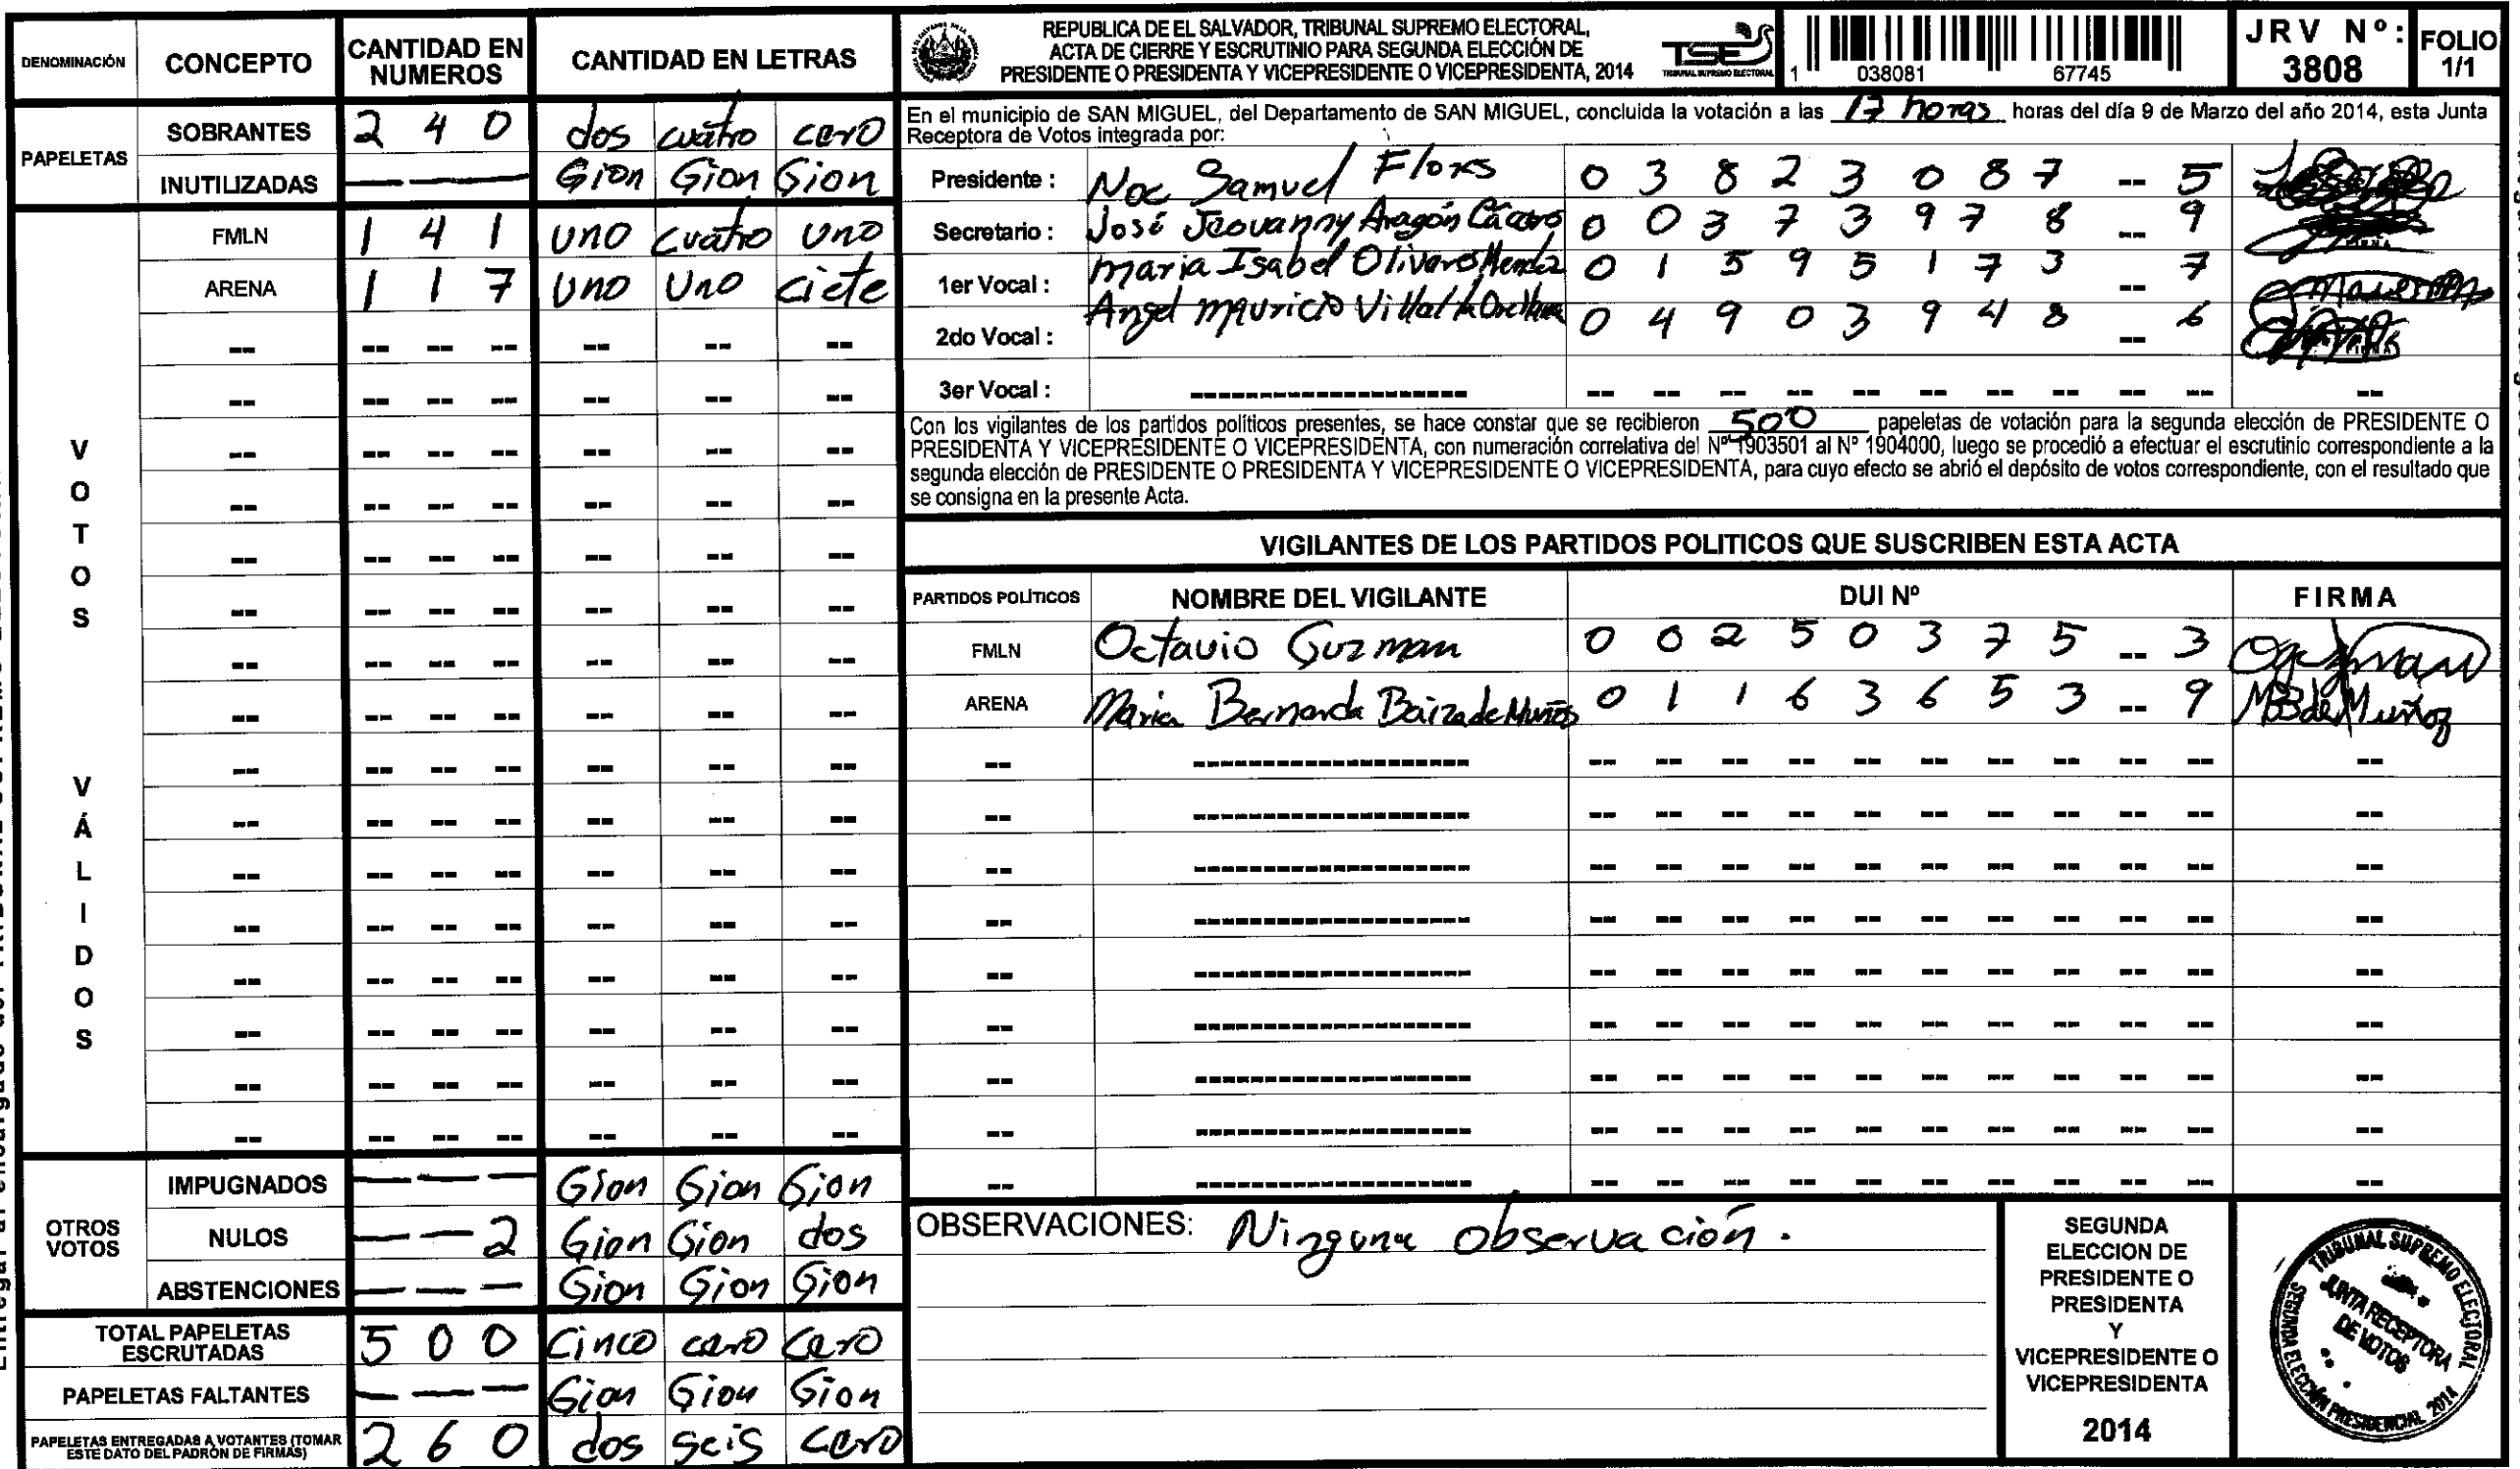 DENOMINACIÓN CONCEPTO CANTIDAD EN NUMEROS CANTIDAD EN LETRAS
PAPELETAS
SOBRANTES 2 4 0 dos cuatro cero
INUTILIZADAS — — — Gion Gion Gion
VOTOS VÁLIDOS
FMLN 1 4 1 uno cuatro uno
ARENA 1 1 7 uno uno ciete
OTROS VOTOS
IMPUGNADOS — — — Gion Gion Gion
NULOS — — 2 Gion Gion dos
ABSTENCIONES — — — Gion Gion Gion
TOTAL PAPELETAS ESCRUTADAS 5 0 0 Cinco cero cero
PAPELETAS FALTANTES — — — Gion Gion Gion
PAPELETAS ENTREGADAS A VOTANTES (TOMAR ESTE DATO DEL PADRÓN DE FIRMAS) 2 6 0 dos seis cero
REPUBLICA DE EL SALVADOR, TRIBUNAL SUPREMO ELECTORAL,
ACTA DE CIERRE Y ESCRUTINIO PARA SEGUNDA ELECCIÓN DE
PRESIDENTE O PRESIDENTA Y VICEPRESIDENTE O VICEPRESIDENTA, 2014
TSE
TRIBUNAL SUPREMO ELECTORAL
1 038081 67745
JRV Nº: 3808
FOLIO 1/1
En el municipio de SAN MIGUEL, del Departamento de SAN MIGUEL, concluida la votación a las 17 horas horas del día 9 de Marzo del año 2014, esta Junta
Receptora de Votos integrada por:
Presidente : Noe Samuel Flores 0 3 8 2 3 0 8 7 -- 5
Secretario : José Jeovanny Aragón Cáceres 0 0 3 7 3 9 7 8 -- 9
1er Vocal : maria Isabel Olivares Mendez 0 1 5 9 5 1 7 3 -- 7
2do Vocal : Angel mauricio Villalta Orellana 0 4 9 0 3 9 4 8 -- 6
3er Vocal :
Con los vigilantes de los partidos políticos presentes, se hace constar que se recibieron 500 papeletas de votación para la segunda elección de PRESIDENTE O
PRESIDENTA Y VICEPRESIDENTE O VICEPRESIDENTA, con numeración correlativa del Nº 1903501 al Nº 1904000, luego se procedió a efectuar el escrutinio correspondiente a la
segunda elección de PRESIDENTE O PRESIDENTA Y VICEPRESIDENTE O VICEPRESIDENTA, para cuyo efecto se abrió el depósito de votos correspondiente, con el resultado que
se consigna en la presente Acta.
VIGILANTES DE LOS PARTIDOS POLITICOS QUE SUSCRIBEN ESTA ACTA
PARTIDOS POLÍTICOS NOMBRE DEL VIGILANTE DUI Nº FIRMA
FMLN Octavio Guzman 0 0 2 5 0 3 7 5 -- 3
ARENA Maria Bernarda Baiza de Muñoz 0 1 1 6 3 6 5 3 -- 9 MBdeMuñoz
OBSERVACIONES: Ninguna observación.
SEGUNDA
ELECCION DE
PRESIDENTE O
PRESIDENTA
Y
VICEPRESIDENTE O
VICEPRESIDENTA
2014
TRIBUNAL SUPREMO ELECTORAL
JUNTA RECEPTORA
DE VOTOS
SEGUNDA ELECCIÓN PRESIDENCIAL 2014